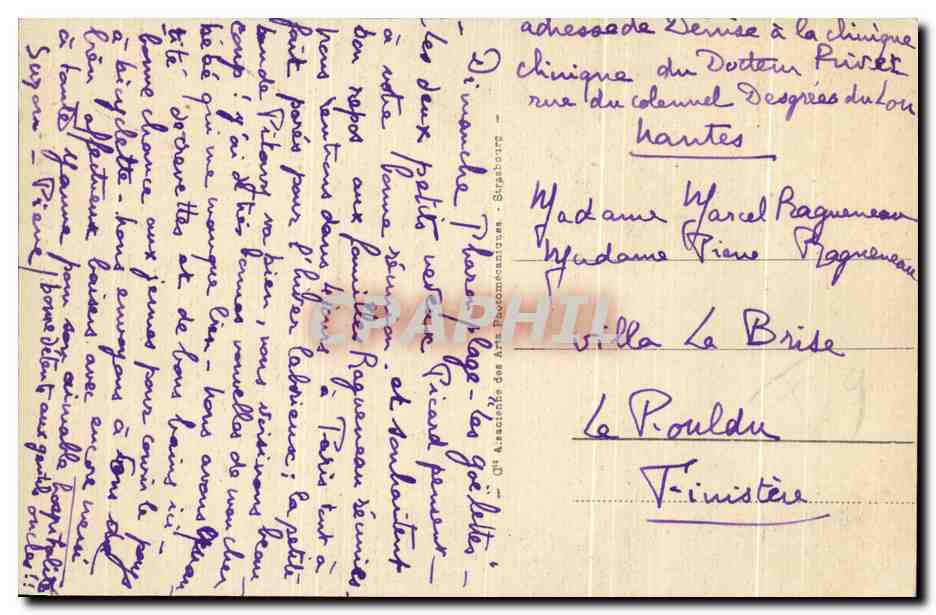 adresse de Denise à la clinique
clinique du Docteur Privet
rue du colonnel Desgrées du Lou
Nantes
Madame Marcel Ragueneau
Madame Pierre Ragueneau
Villa La Brise
Le Pouldu
Finistère
- Cie Alsacienne des Arts Photomécaniques - Strasbourg -
CPAPHIL
- Dimanche Pharec plage - "Les goëlettes -
- Les deux petits neveux Picard pensent -
à votre bonne réunion et souhaitent
bon repos aux familles Ragueneau réunies
nous rentrons dans 4 jours à Paris tout à
fait parés pour l'hiver laborieux; la petite
bande Picard va bien, nous réussissons beau
coup! j'ai de très bonnes nouvelles de mon cher
bébé qui me manque bien - nous avons
été et de bons bains ici
bonne chance aux jeunes pour courir le pays
à bicyclette - nous envoyons à tous de
bien affectueux baisers avec encore merci
à tante Jeanne pour son aimable hospitalité
Suzon - Pierre / bonne détente aux gentils oncles!!